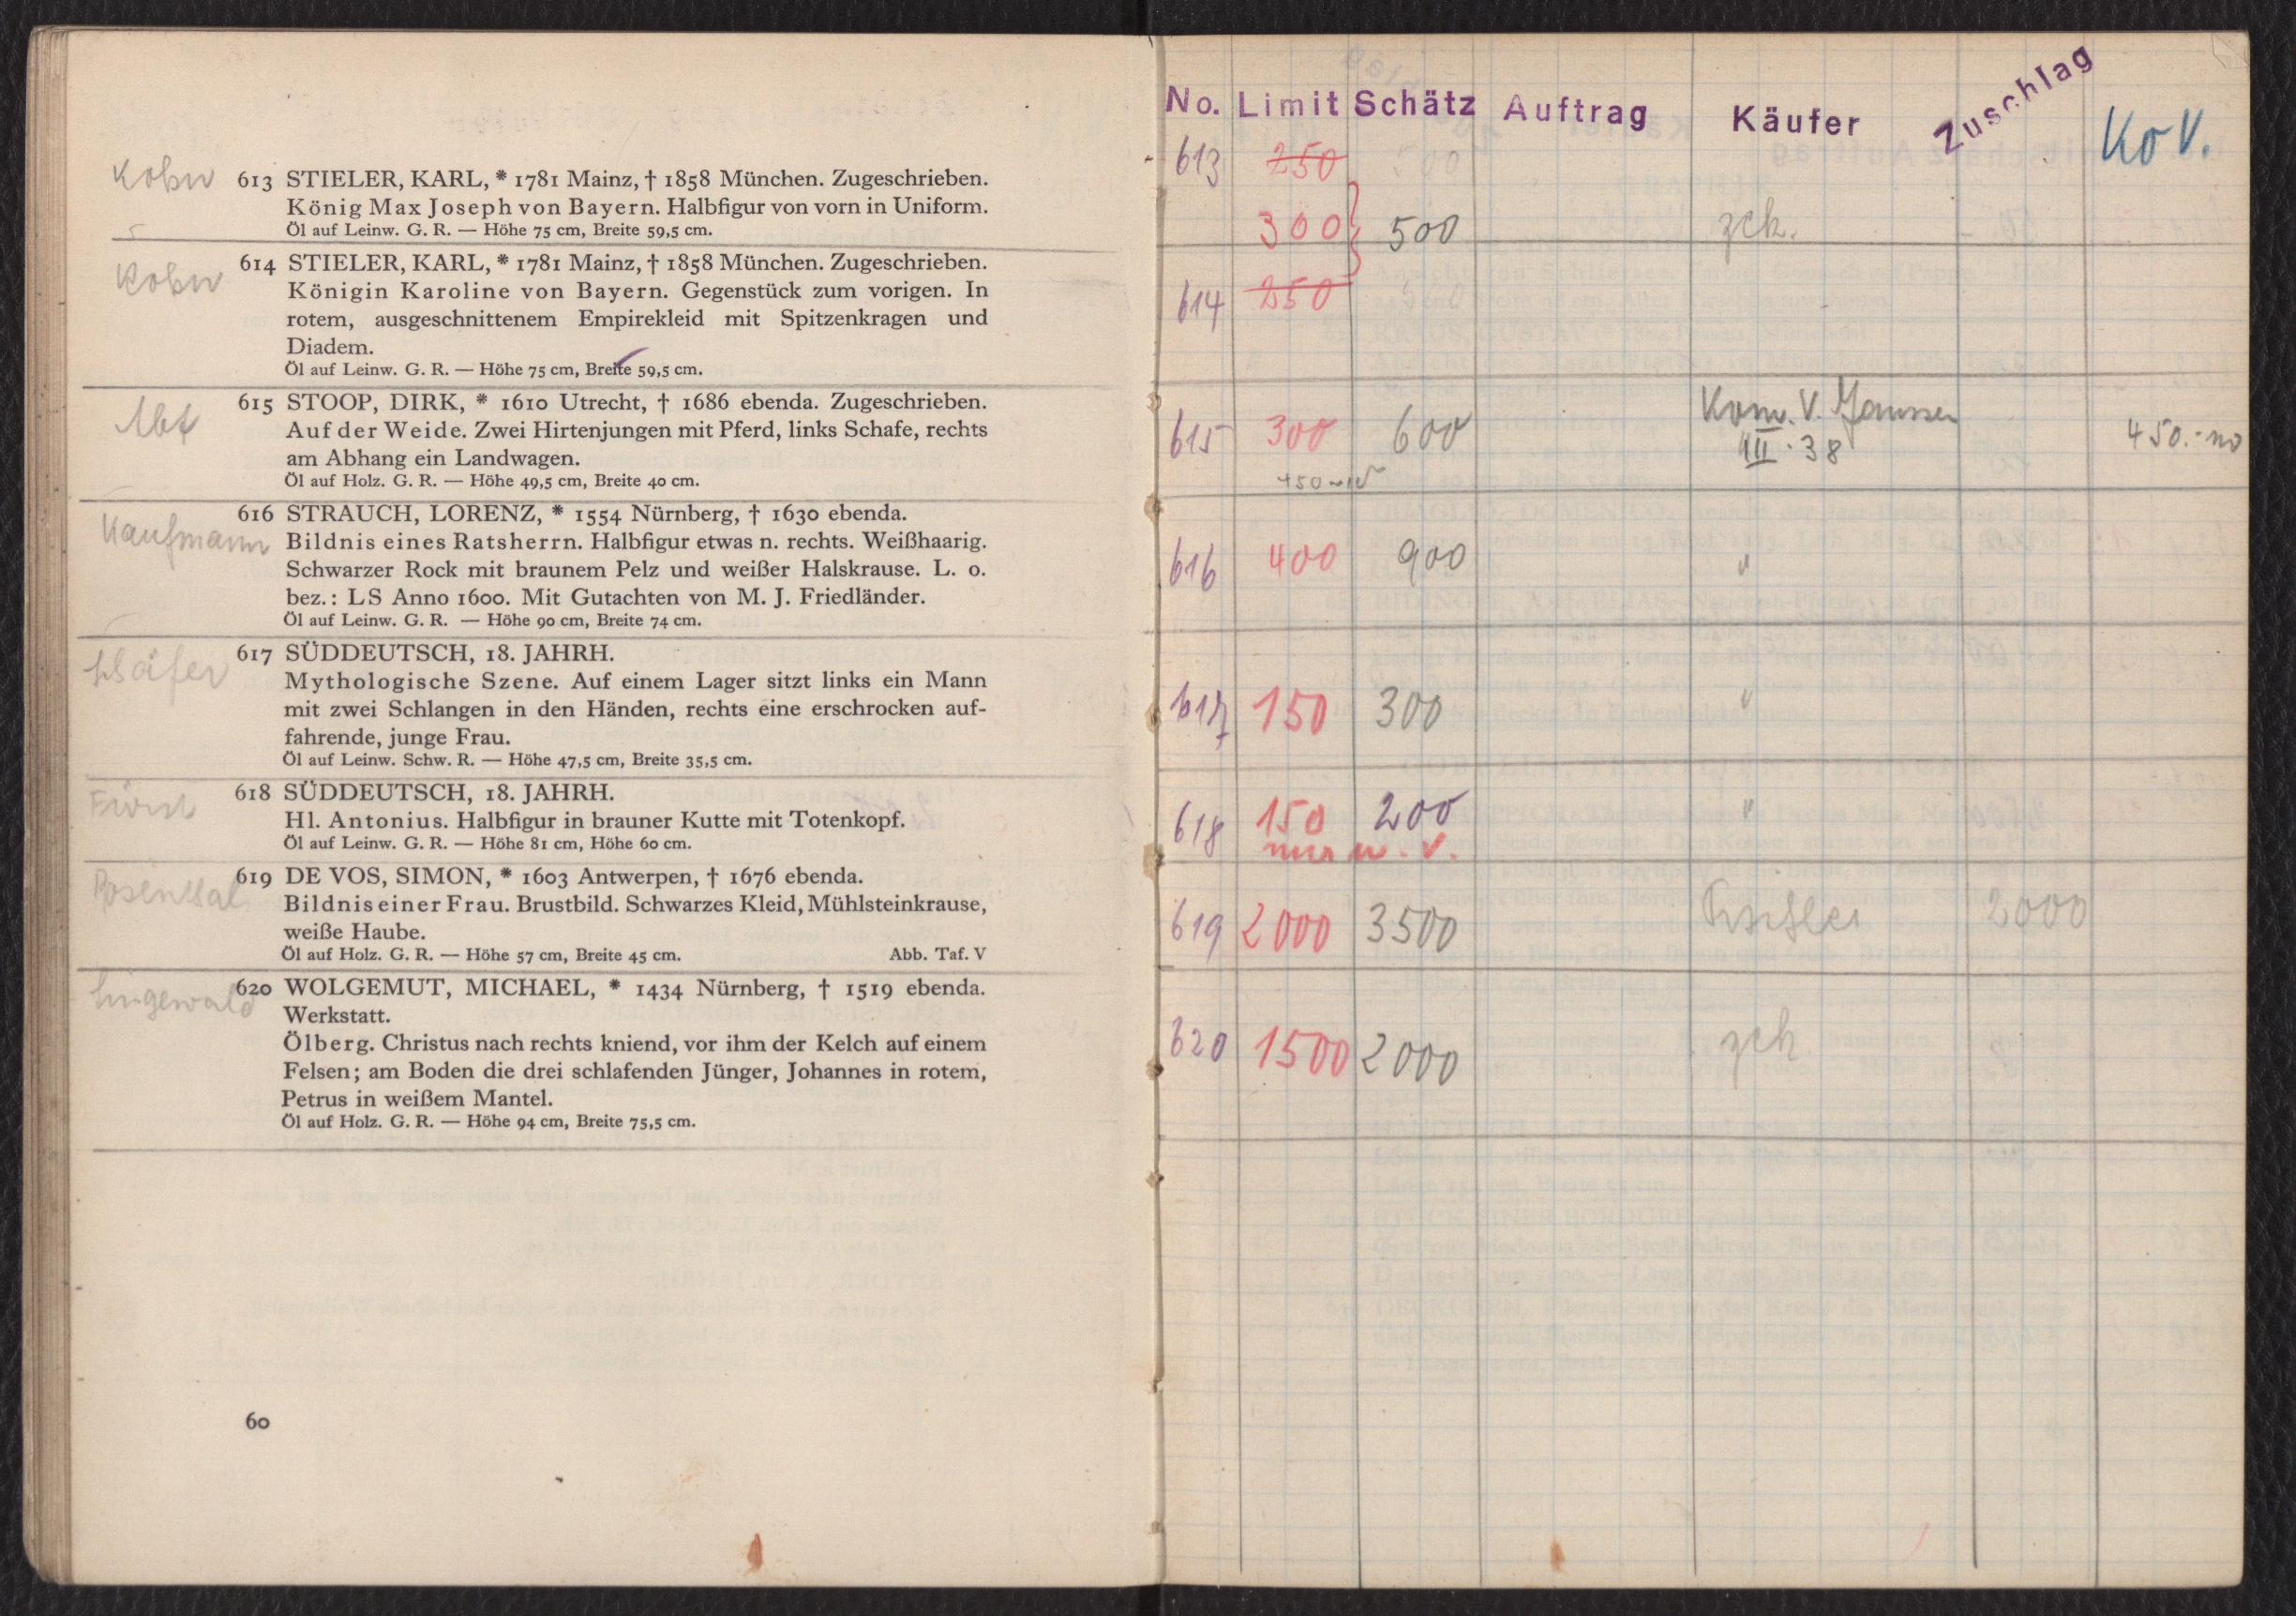 Kohn
613 STIELER, KARL, * 1781 Mainz, † 1858 München. Zugeschrieben.
König Max Joseph von Bayern. Halbfigur von vorn in Uniform.
Öl auf Leinw. G. R. — Höhe 75 cm, Breite 59,5 cm.
Kohn
614 STIELER, KARL, * 1781 Mainz, † 1858 München. Zugeschrieben.
Königin Karoline von Bayern. Gegenstück zum vorigen. In
rotem, ausgeschnittenem Empirekleid mit Spitzenkragen und
Diadem.
Öl auf Leinw. G. R. — Höhe 75 cm, Breite 59,5 cm.
Abt
615 STOOP, DIRK, * 1610 Utrecht, † 1686 ebenda. Zugeschrieben.
Auf der Weide. Zwei Hirtenjungen mit Pferd, links Schafe, rechts
am Abhang ein Landwagen.
Öl auf Holz. G. R. — Höhe 49,5 cm, Breite 40 cm.
Kaufmann
616 STRAUCH, LORENZ, * 1554 Nürnberg, † 1630 ebenda.
Bildnis eines Ratsherrn. Halbfigur etwas n. rechts. Weißhaarig.
Schwarzer Rock mit braunem Pelz und weißer Halskrause. L. o.
bez.: LS Anno 1600. Mit Gutachten von M. J. Friedländer.
Öl auf Leinw. G. R. — Höhe 90 cm, Breite 74 cm.
617 SÜDDEUTSCH, 18. JAHRH.
Mythologische Szene. Auf einem Lager sitzt links ein Mann
mit zwei Schlangen in den Händen, rechts eine erschrocken auf-
fahrende, junge Frau.
Öl auf Leinw. Schw. R. — Höhe 47,5 cm, Breite 35,5 cm.
Fürst
618 SÜDDEUTSCH, 18. JAHRH.
Hl. Antonius. Halbfigur in brauner Kutte mit Totenkopf.
Öl auf Leinw. G. R. — Höhe 81 cm, Höhe 60 cm.
Rosenthal
619 DE VOS, SIMON, * 1603 Antwerpen, † 1676 ebenda.
Bildnis einer Frau. Brustbild. Schwarzes Kleid, Mühlsteinkrause,
weiße Haube.
Öl auf Holz. G. R. — Höhe 57 cm, Breite 45 cm. Abb. Taf. V
620 WOLGEMUT, MICHAEL, * 1434 Nürnberg, † 1519 ebenda.
Werkstatt.
Ölberg. Christus nach rechts kniend, vor ihm der Kelch auf einem
Felsen; am Boden die drei schlafenden Jünger, Johannes in rotem,
Petrus in weißem Mantel.
Öl auf Holz. G. R. — Höhe 94 cm, Breite 75,5 cm.
60
No. Limit Schätz Auftrag Käufer Zuschlag KoV.
613 250 500
300 500 zck.
614 250
615 300 600 Kom. V. Janssen 450.- no
III. 38
450
616 400 900 "
617 150 300 "
618 150 200 "
nur w. V.
619 2000 3500 2000
620 1500 2000 zck